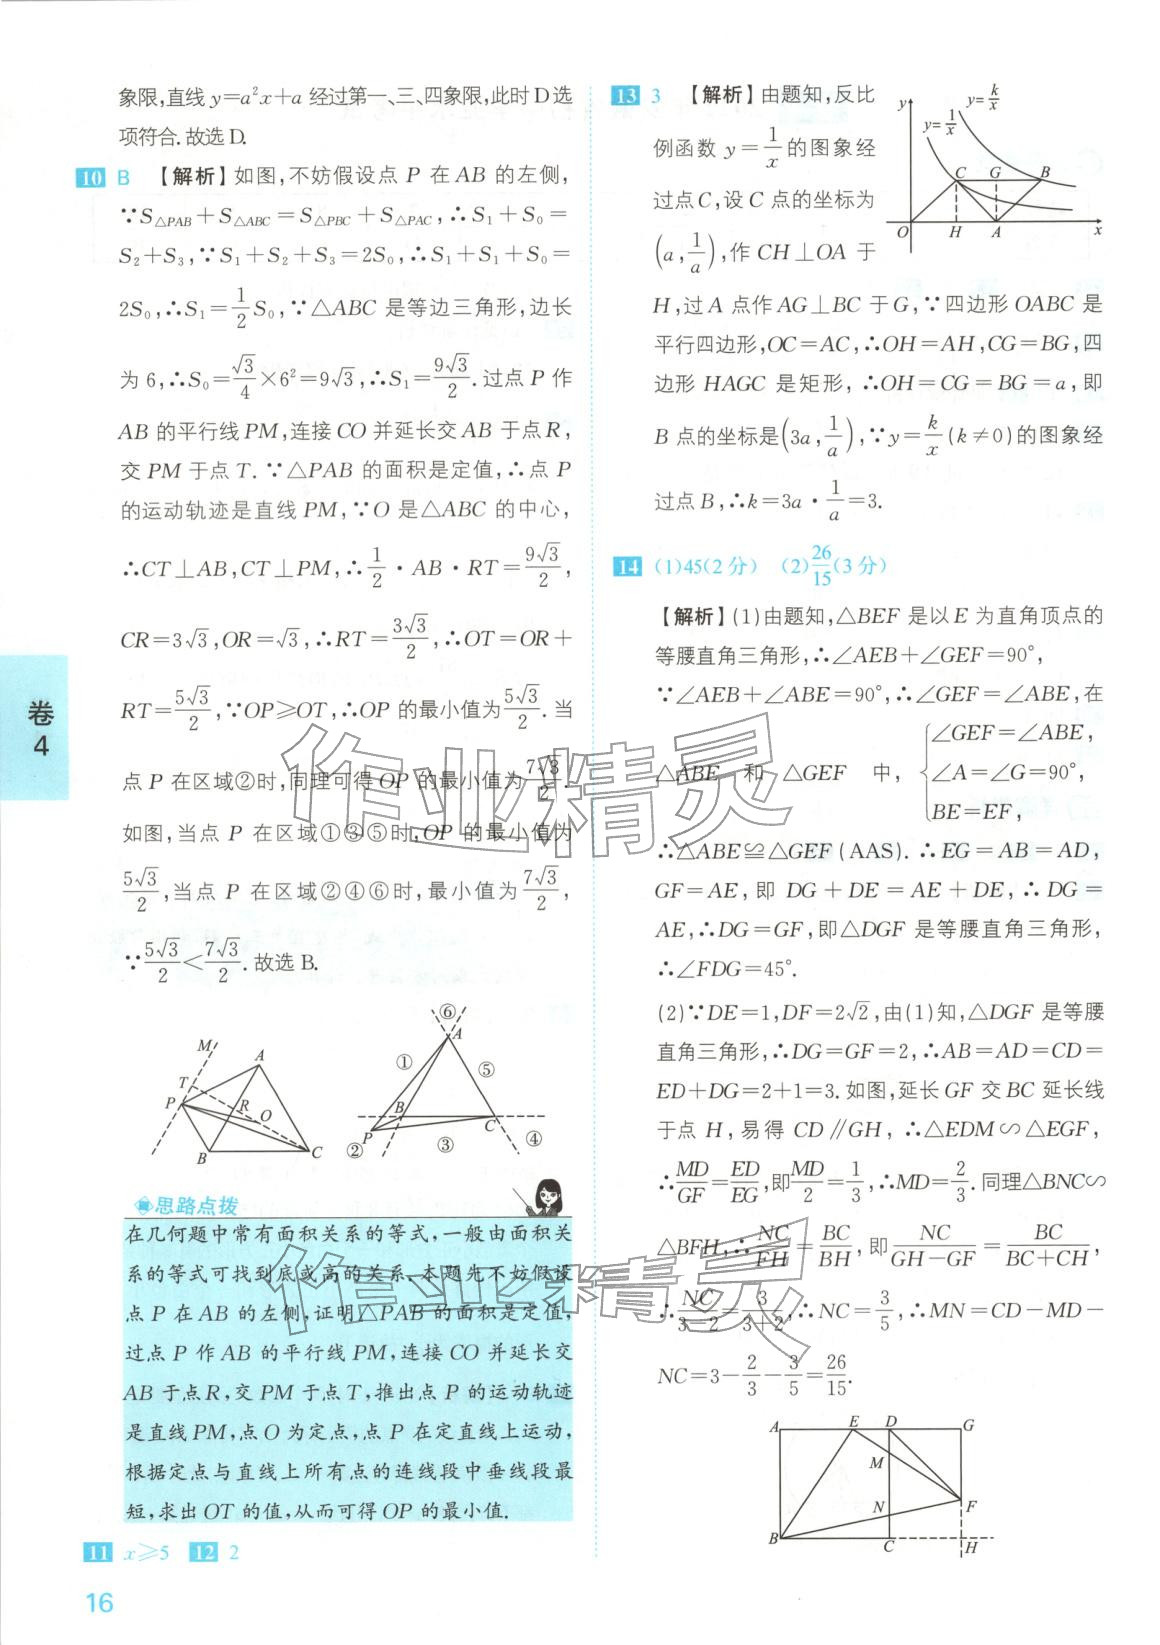 象限,直线 y=a²x+a 经过第一、三、四象限,此时 D 选
项符合. 故选 D.
10 B 【解析】如图,不妨假设点 P 在 AB 的左侧,
∵S△PAB+S△ABC=S△PBC+S△PAC,∴S₁+S₀=
S₂+S₃,∵S₁+S₂+S₃=2S₀,∴S₁+S₁+S₀=
2S₀,∴S₁=1/2 S₀,∵△ABC 是等边三角形,边长
为 6,∴S₀=√3/4×6²=9√3,∴S₁=9√3/2. 过点 P 作
AB 的平行线 PM,连接 CO 并延长交 AB 于点 R,
交 PM 于点 T. ∵△PAB 的面积是定值,∴点 P
的运动轨迹是直线 PM,∵O 是△ABC 的中心,
∴CT⊥AB,CT⊥PM,∴1/2 · AB · RT=9√3/2,
CR=3√3,OR=√3,∴RT=3√3/2,∴OT=OR+
RT=5√3/2,∵OP≥OT,∴OP 的最小值为5√3/2. 当
点 P 在区域②时,同理可得 OP 的最小值为7√3/2.
如图,当点 P 在区域①③⑤时,OP 的最小值为
5√3/2,当点 P 在区域②④⑥时,最小值为7√3/2,
∵5√3/2<7√3/2. 故选 B.
M
T
P
A
R
O
B
C
⑥
A
①
⑤
B
C
P
②
③
④
思路点拨
在几何题中常有面积关系的等式,一般由面积关
系的等式可找到底或高的关系. 本题先不妨假设
点 P 在 AB 的左侧,证明△PAB 的面积是定值,
过点 P 作 AB 的平行线 PM,连接 CO 并延长交
AB 于点 R,交 PM 于点 T,推出点 P 的运动轨迹
是直线 PM,点 O 为定点,点 P 在定直线上运动,
根据定点与直线上所有点的连线段中垂线段最
短,求出 OT 的值,从而可得 OP 的最小值.
11 x≥5 12 2
16
卷4
13 3 【解析】由题知,反比
例函数 y=1/x 的图象经
过点 C,设 C 点的坐标为
(a,1/a),作 CH⊥OA 于
H,过 A 点作 AG⊥BC 于 G,∵四边形 OABC 是
平行四边形,OC=AC,∴OH=AH,CG=BG,四
边形 HAGC 是矩形,∴OH=CG=BG=a,即
B 点的坐标是(3a,1/a),∵y=k/x(k≠0)的图象经
过点 B,∴k=3a · 1/a=3.
y
y=k/x
y=1/x
C
G
B
O
H
A
x
14 (1)45(2 分) (2)26/15(3 分)
【解析】(1)由题知,△BEF 是以 E 为直角顶点的
等腰直角三角形,∴∠AEB+∠GEF=90°,
∵∠AEB+∠ABE=90°,∴∠GEF=∠ABE,在
△ABE 和 △GEF 中,{∠GEF=∠ABE,
∠A=∠G=90°,
BE=EF,
∴△ABE≌△GEF(AAS). ∴EG=AB=AD,
GF=AE,即 DG+DE=AE+DE,∴DG=
AE,∴DG=GF,即△DGF 是等腰直角三角形,
∴∠FDG=45°.
(2)∵DE=1,DF=2√2,由(1)知,△DGF 是等腰
直角三角形,∴DG=GF=2,∴AB=AD=CD=
ED+DG=2+1=3. 如图,延长 GF 交 BC 延长线
于点 H,易得 CD∥GH,∴△EDM∽△EGF,
∴MD/GF=ED/EG,即MD/2=1/3,∴MD=2/3. 同理△BNC∽
△BFH,∴NC/FH=BC/BH,即NC/(GH−GF)=BC/(BC+CH),
∴NC/(3−2)=3/(3+2),∴NC=3/5,∴MN=CD−MD−
NC=3−2/3−3/5=26/15.
A
E
D
G
M
F
N
B
C
H
作业精灵
作业精灵